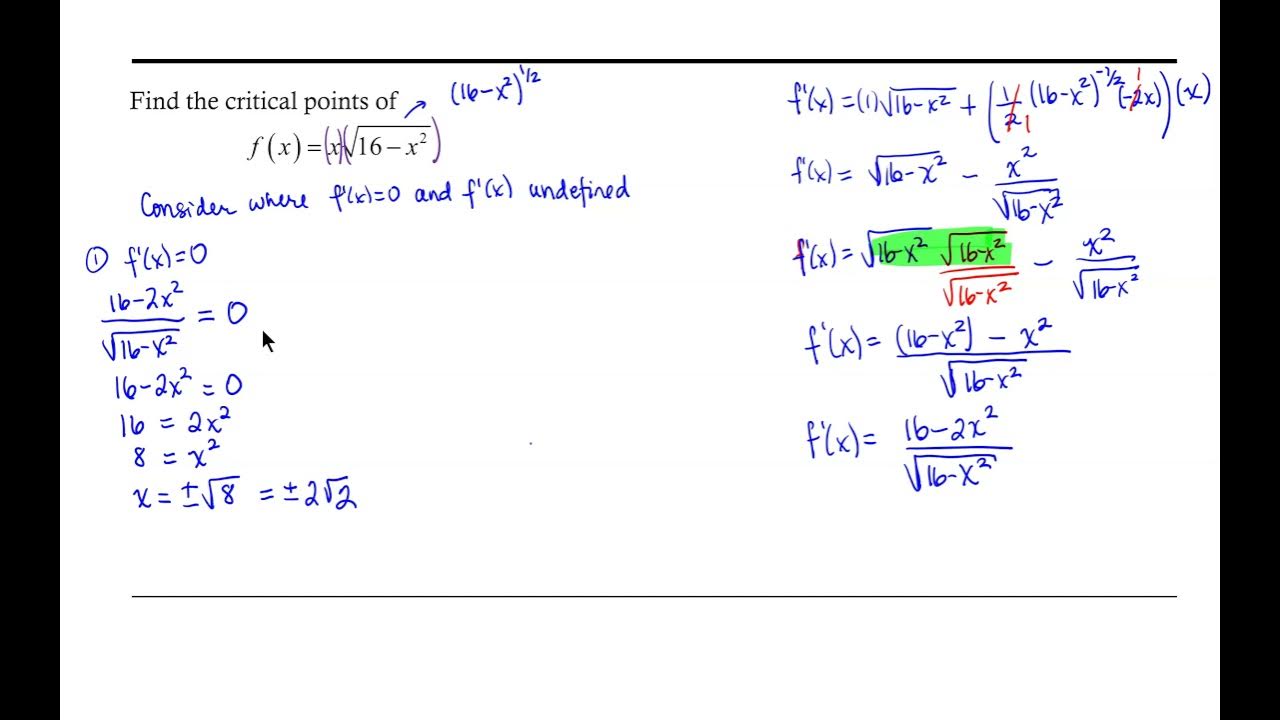 Find the critical points of
(16-x²)^1/2
f(x)=(x)(√16-x²)
Consider where f'(x)=0 and f'(x) undefined
① f'(x)=0
16-2x²/√16-x² = 0
16-2x² = 0
16 = 2x²
8 = x²
x = ±√8 = ±2√2
f'(x)=(1)√16-x² + (1/2 (16-x²)^-1/2 (-2x))(x)
1
1
f'(x) = √16-x² - x²/√16-x²
f'(x) = √16-x² √16-x²/√16-x² - x²/√16-x²
f'(x) = (16-x²) - x²/√16-x²
f'(x) = 16-2x²/√16-x²